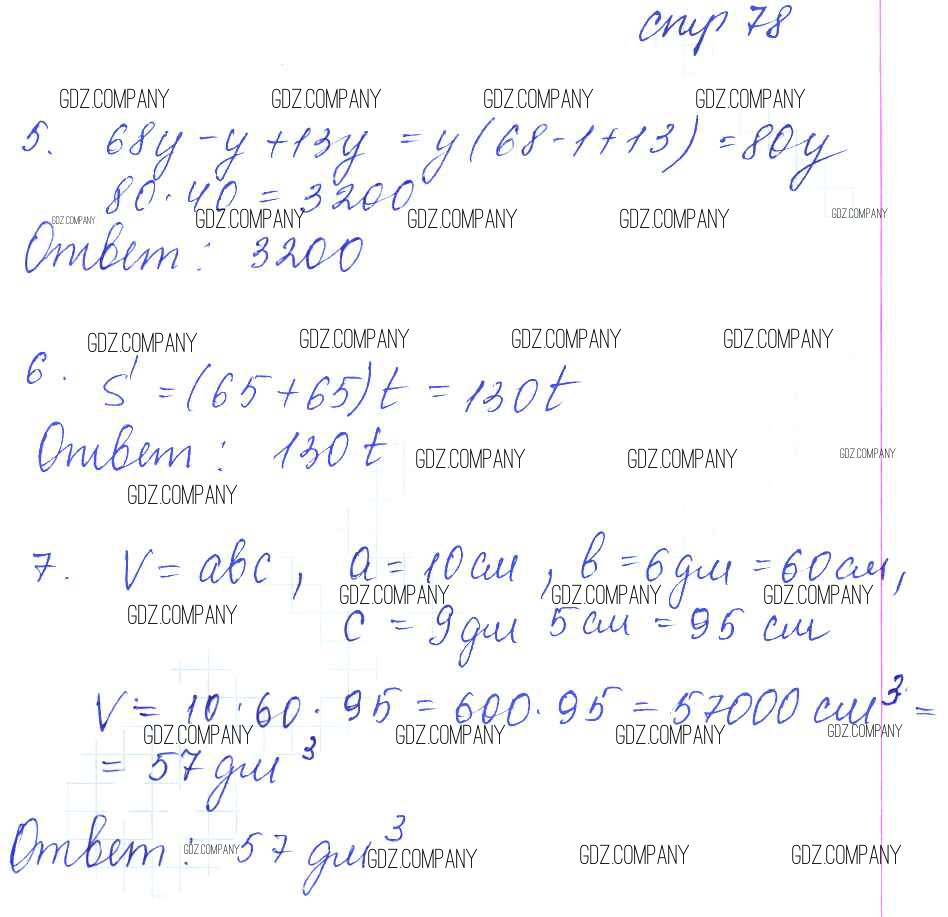 стр 78
GDZ.COMPANY GDZ.COMPANY GDZ.COMPANY GDZ.COMPANY
5. 68y - y + 13y = y(68-1+13) = 80y
80·40 = 3200
GDZ.COMPANY GDZ.COMPANY GDZ.COMPANY GDZ.COMPANY GDZ.COMPANY
Ответ: 3200
GDZ.COMPANY GDZ.COMPANY GDZ.COMPANY GDZ.COMPANY
6. S = (65+65)t = 130t
Ответ: 130t GDZ.COMPANY GDZ.COMPANY GDZ.COMPANY
GDZ.COMPANY
7. V = abc, a = 10 см, b = 6 дм = 60 см,
GDZ.COMPANY GDZ.COMPANY GDZ.COMPANY GDZ.COMPANY
c = 9 дм 5 см = 95 см
V = 10·60·95 = 600·95 = 57000 см³ =
GDZ.COMPANY GDZ.COMPANY GDZ.COMPANY GDZ.COMPANY
= 57 дм³
Ответ: 57 дм³
GDZ.COMPANY GDZ.COMPANY GDZ.COMPANY GDZ.COMPANY